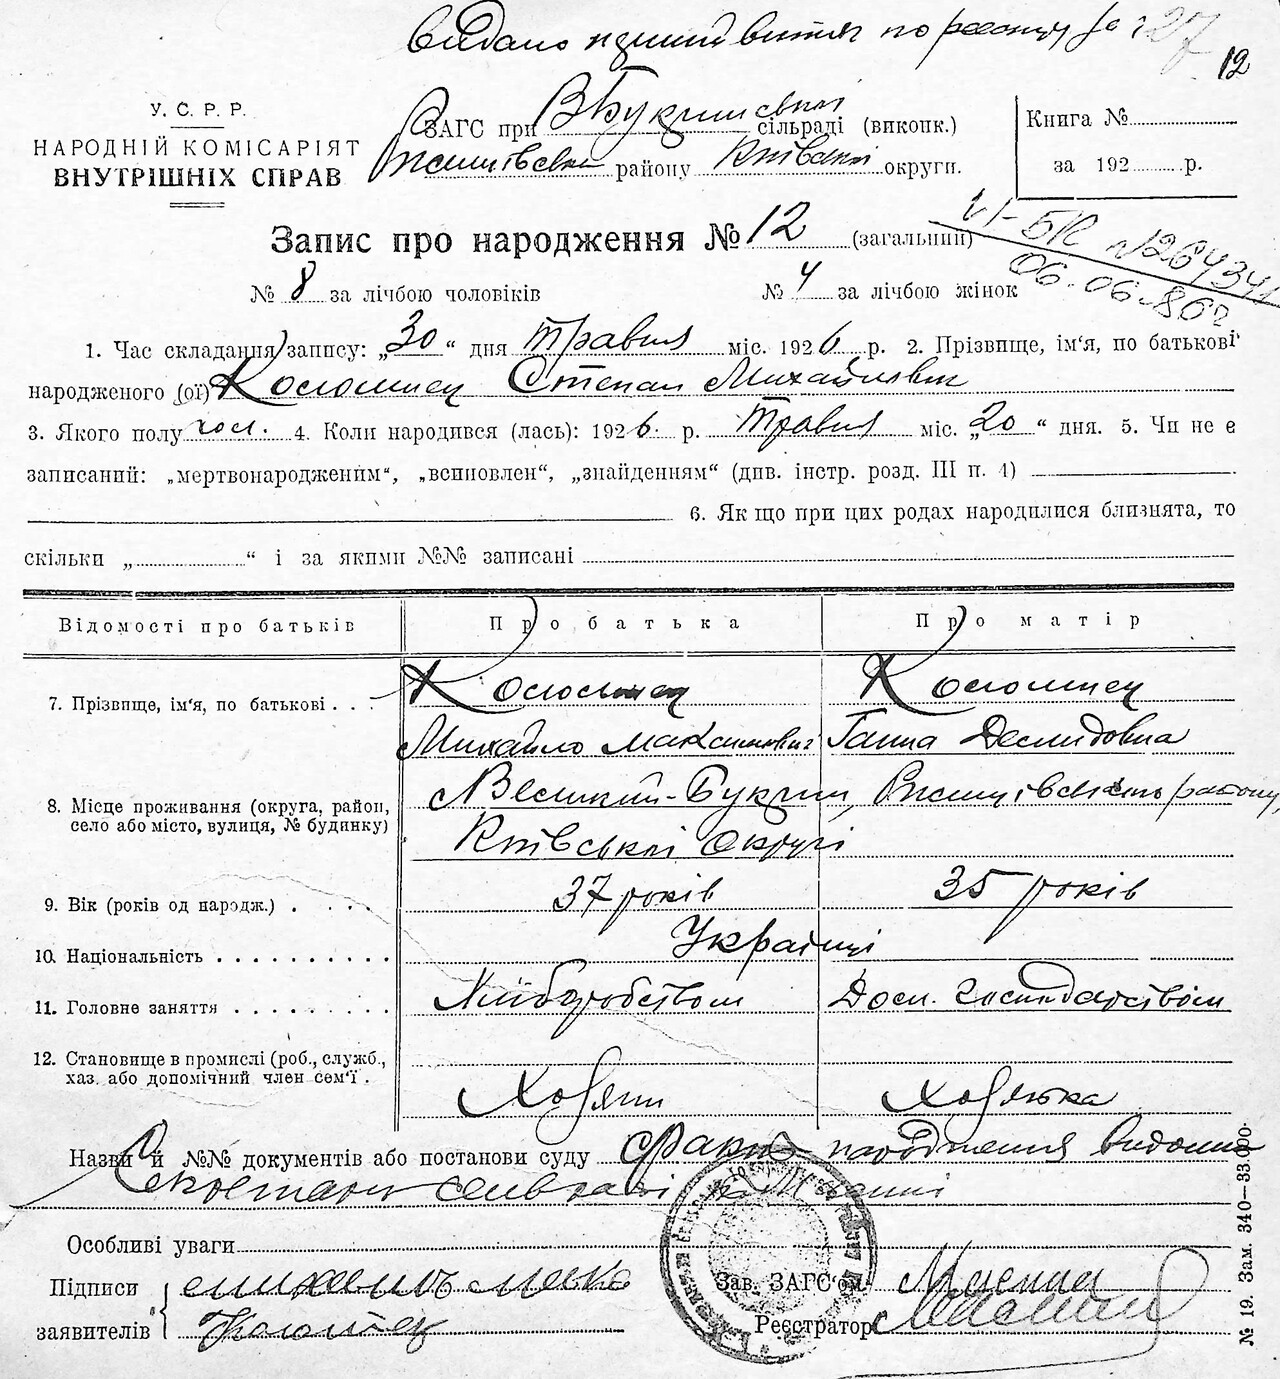 видано
12
У. С. Р. Р.
НАРОДНІЙ КОМІСАРІЯТ
ВНУТРІШНІХ СПРАВ
ЗАГС при В Букринській сільраді (виконк.)
Ржищівськ району Київської округи.
Книга №
за 192 р.
Запис про народження № 12 (загальний)
№ 8 за лічбою чоловіків № 4 за лічбою жінок
06.06.86г
1. Час складання запису: „30“ дня травня міс. 1926 р. 2. Прізвище, ім'я, по батькові
народженого (ої) Коломиец Степан Михайлович
3. Якого полу чол. 4. Коли народився (лась): 1926 р. травня міс. „20“ дня. 5. Чи не є
записаний: „мертвонародженим“, „всиновлен“, „знайденням“ (див. інстр. розд. III п. 4)
6. Як що при цих родах народилися близнята, то
скільки „ “ і за якими №№ записані
Відомості про батьків Про батька Про матір
7. Прізвище, ім'я, по батькові . . . Коломиец Коломиец
Михайло Максимович Ганна Демидовна
8. Місце проживання (округа, район, село або місто, вулиця, № будинку) Великий-Букрин, Ржищівського району,
Київської Округи
9. Вік (років од народж.) . . . . 37 років 35 років
10. Національність . . . . . . . . . . Українці
11. Головне заняття . . . . . . . . . Хліборобством Дом. господарством
12. Становище в промислі (роб., служб.,
хаз. або допомічний член сем'ї . Хозяин Хозяйка
Назви й №№ документів або постанови суду народження
Особливі уваги
Підписи
заявителів
Зав. ЗАГС'ом
Реєстратор
№ 19. Зам. 340—33.000.